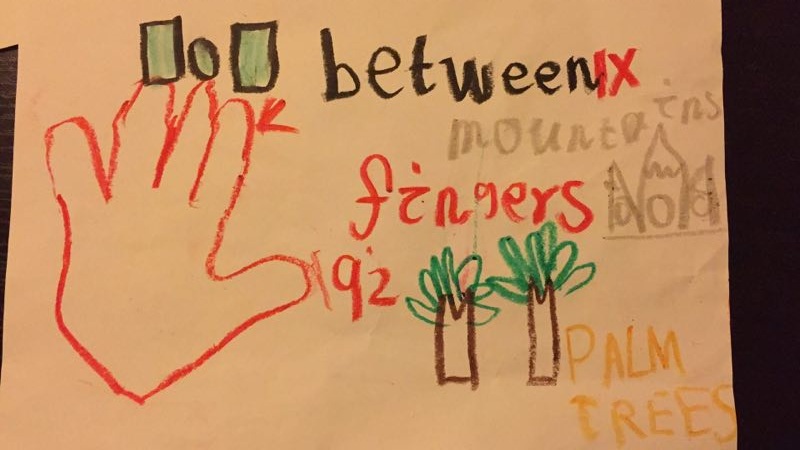 between 1x
mountains
fingers
1 q2
PALM
TREES